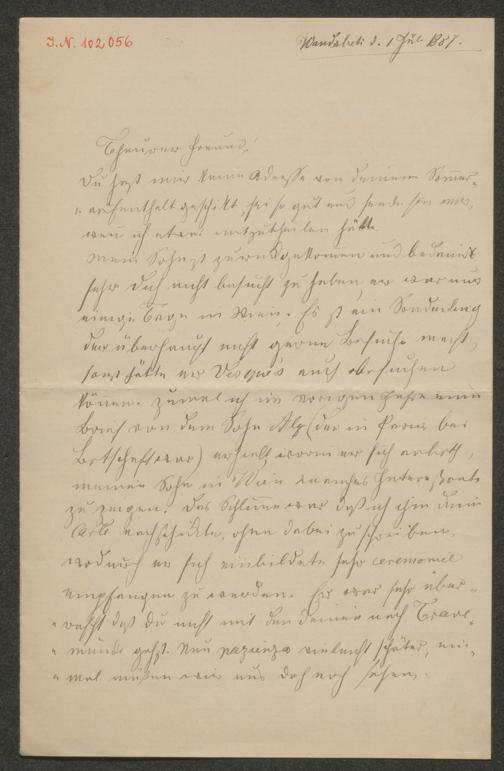 J.N. 102056
Wandsbek d. 1 Jul 1887.
Theurer Freund!
Du hast mir keine Adresse von Deinem Sommer-
aufenthalt geschickt, sei so gut und sende sie mir,
wenn ich etwas mitzutheilen hätte.
Mein Sohn ist zurückgekommen und bedauert
sehr Dich nicht besucht zu haben, er war nur
einige Tage in Wien. Es ist ein Sonderling
der überhaupt nicht gerne Besuche macht,
sonst hätte er Vesque's auch besuchen
können. zumal ich im vorigen Jahre einen
Brief von dem Sohn Alex (der in Paris bei
Botschaft war) erhielt worin er sich erbot,
meinem Sohn in Wien manches Interessante
zu zeigen. Das Schlimme war daß ich ihm Deine
Carte nachschickte, ohne dabei zu schreiben,
wodurch er sich einbildete sehr ceremoniel
empfangen zu werden. Er war sehr über-
rascht daß Du nicht mit den Deinen nach Trave-
münde gehst. Nun pazienza vielleicht später, ein-
mal müßen wir uns doch noch sehen.